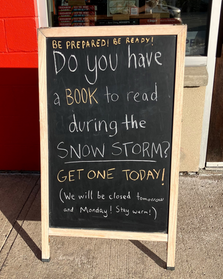 BE PREPARED! BE READY!
Do you have
a BOOK to read
during the
SNOW STORM?
GET ONE TODAY!
(We will be closed tomorrow
and Monday! Stay warm!)